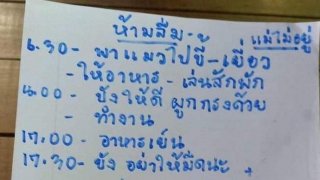 ห้ามลืม - แม่ไม่อยู่
6.30 - พาแมวไปขี้ - เยี่ยว
- ให้อาหาร - เล่นสักพัก
8.00 - ขังให้ดี ผูกกรงด้วย
- ทำงาน
17.00 - อาหารเย็น
17.30 - ขัง อย่าให้มืดนะ